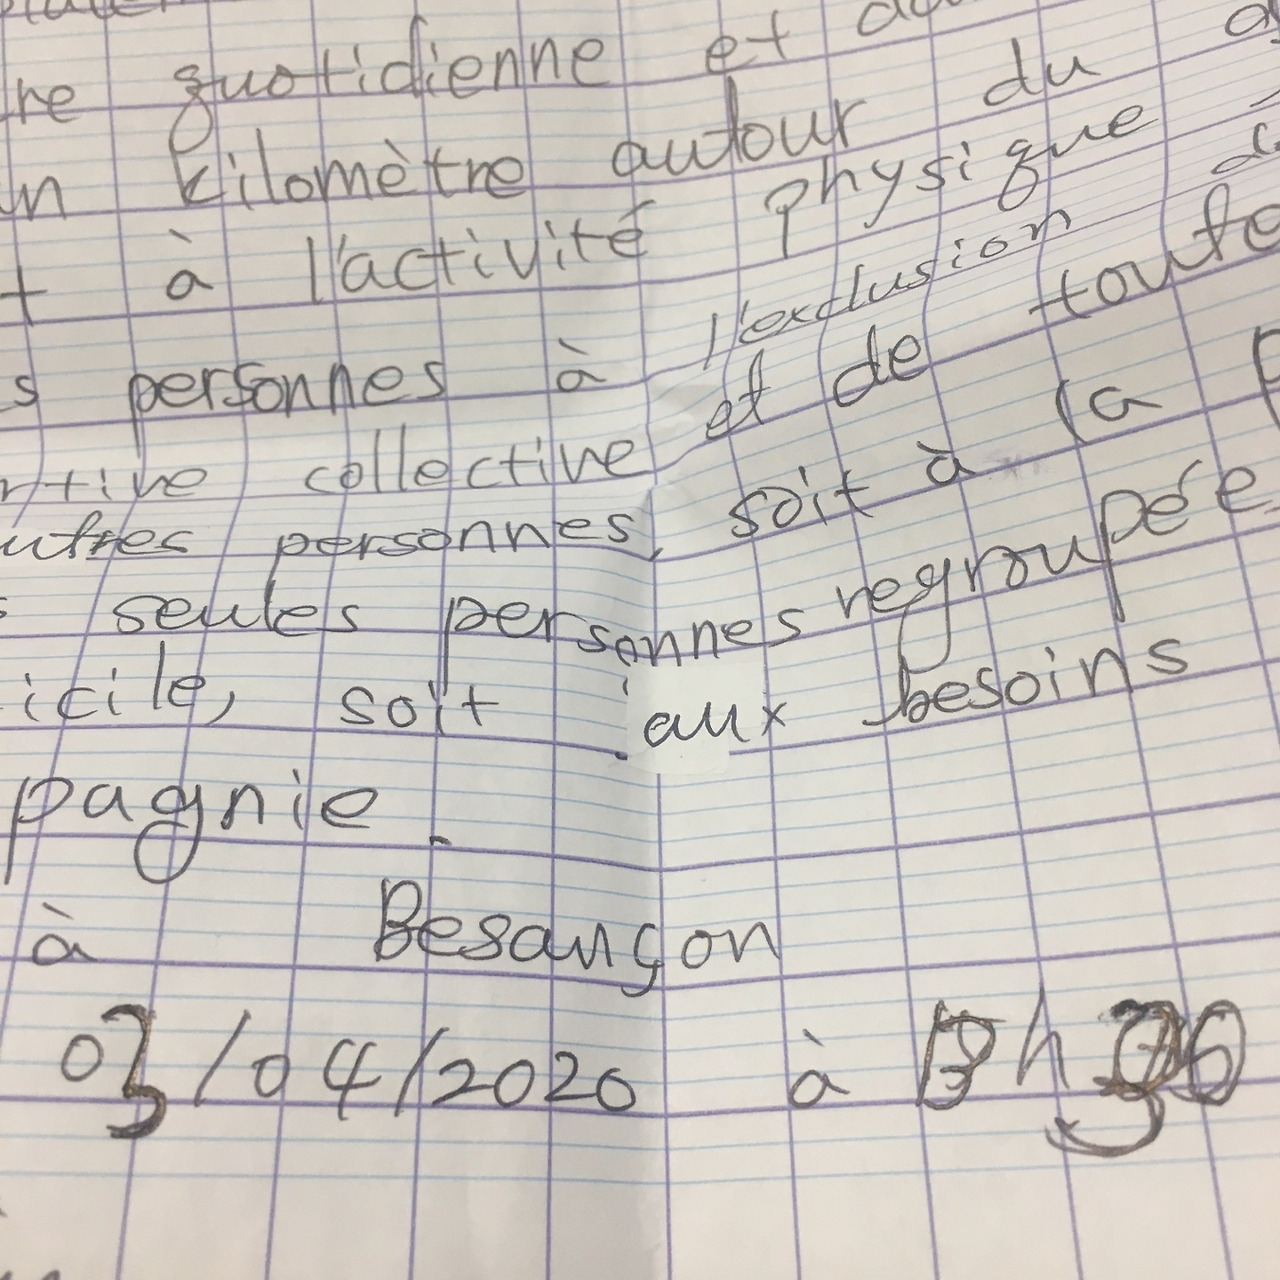 re quotidienne et
n kilomètre autour du
t à l'activité physique
s personnes à l'exclusion
rtive collective et de toute
utres personnes, soit à la
s seules personnes regroupée
icile, soit aux besoins
pagnie.
à Besançon
03/04/2020 à h